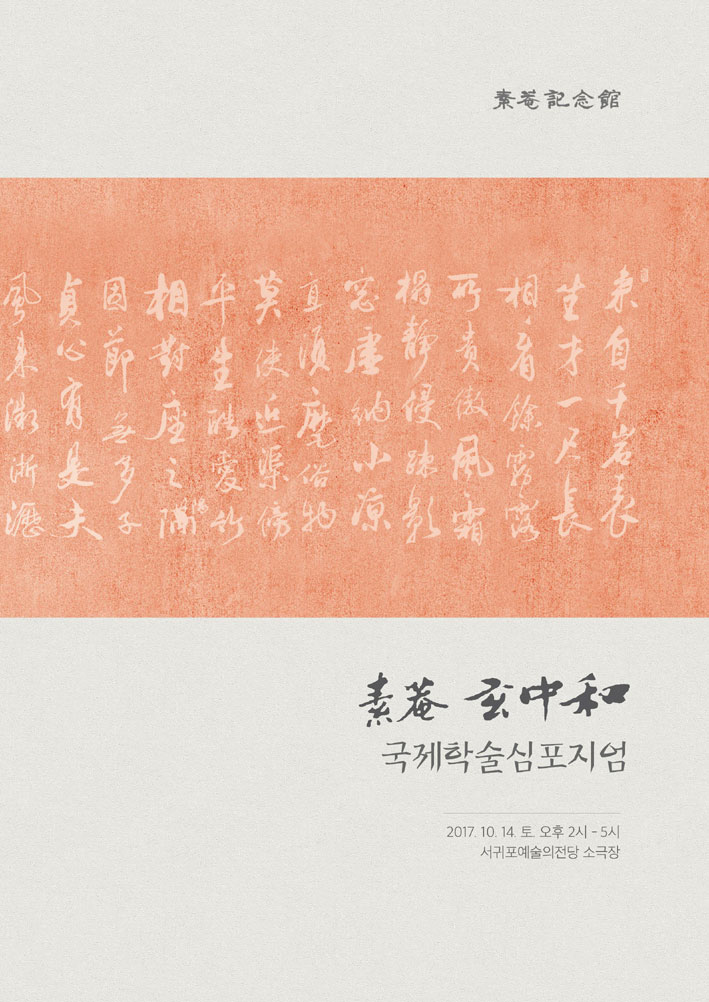 素菴記念館
來自千岩表
生才一尺長
相看餘露
所貴傲風霜
榻靜疎影
窓虛納小凉
須麾俗物
莫使近渠傍
平生酷愛竹
相對座之隅
節無多子
貞心有是夫
風來淅瀝
素菴 玄中和
국제학술심포지엄
2017. 10. 14. 토. 오후 2시 - 5시
서귀포예술의전당 소극장